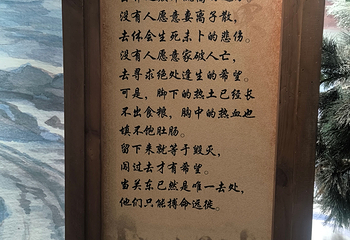 没有人愿意妻离子散，
去体会生死未卜的悲伤。
没有人愿意家破人亡，
去寻求绝处逢生的希望。
可是，脚下的热土已经长
不出食粮，胸中的热血也
填不饱肚肠。
留下来就等于毁灭，
闯过去才有希望。
当关东已然是唯一去处，
他们只能搏命远徙。